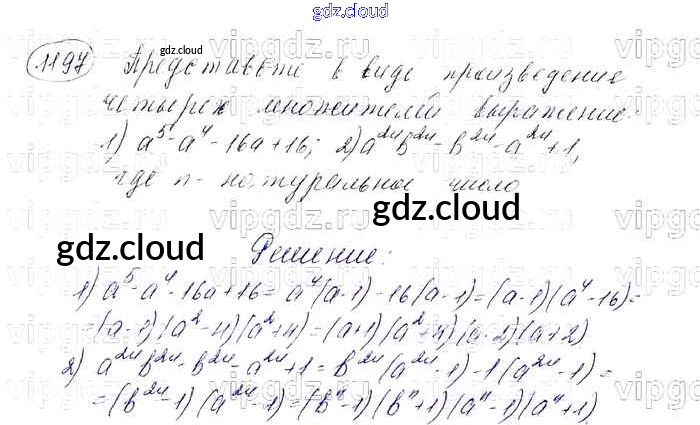 gdz.cloud
1197 Представьте в виде произведения
четырех множителей выражение:
1) a⁵-a⁴-16a+16; 2) a²ⁿb²ⁿ-b²ⁿ-a²ⁿ+1,
где n- натуральное число
gdz.cloud
gdz.cloud
Решение:
1) a⁵-a⁴-16a+16=a⁴(a-1)-16(a-1)=(a-1)(a⁴-16)=
=(a-1)(a²-4)(a²+4)=(a+1)(a²+4)(a-2)(a+2)
2) a²ⁿb²ⁿ-b²ⁿ-a²ⁿ+1=b²ⁿ(a²ⁿ-1)-1(a²ⁿ-1)=
=(b²ⁿ-1)(a²ⁿ-1)=(bⁿ-1)(bⁿ+1)(aⁿ-1)(aⁿ+1).